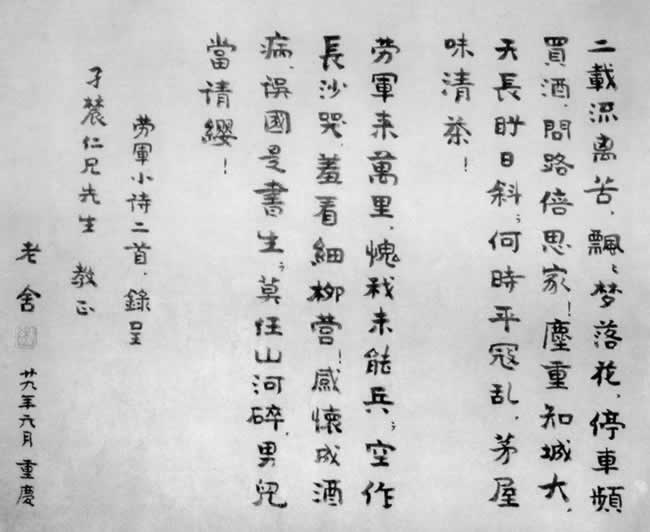 二載流离苦，飄飄梦落花，停車頻
買酒，問路倍思家！塵重知城大，
天長盱日斜；何時平寇乱，茅屋
味清茶！
劳軍来萬里，愧我未能兵；空作
長沙哭，羞看細柳营！感懷成酒
病，误國是書生；莫任山河碎，男兒
當请缨！
劳軍小诗二首，錄呈
子農仁兄先生 教正
老舍
廿九年六月 重慶